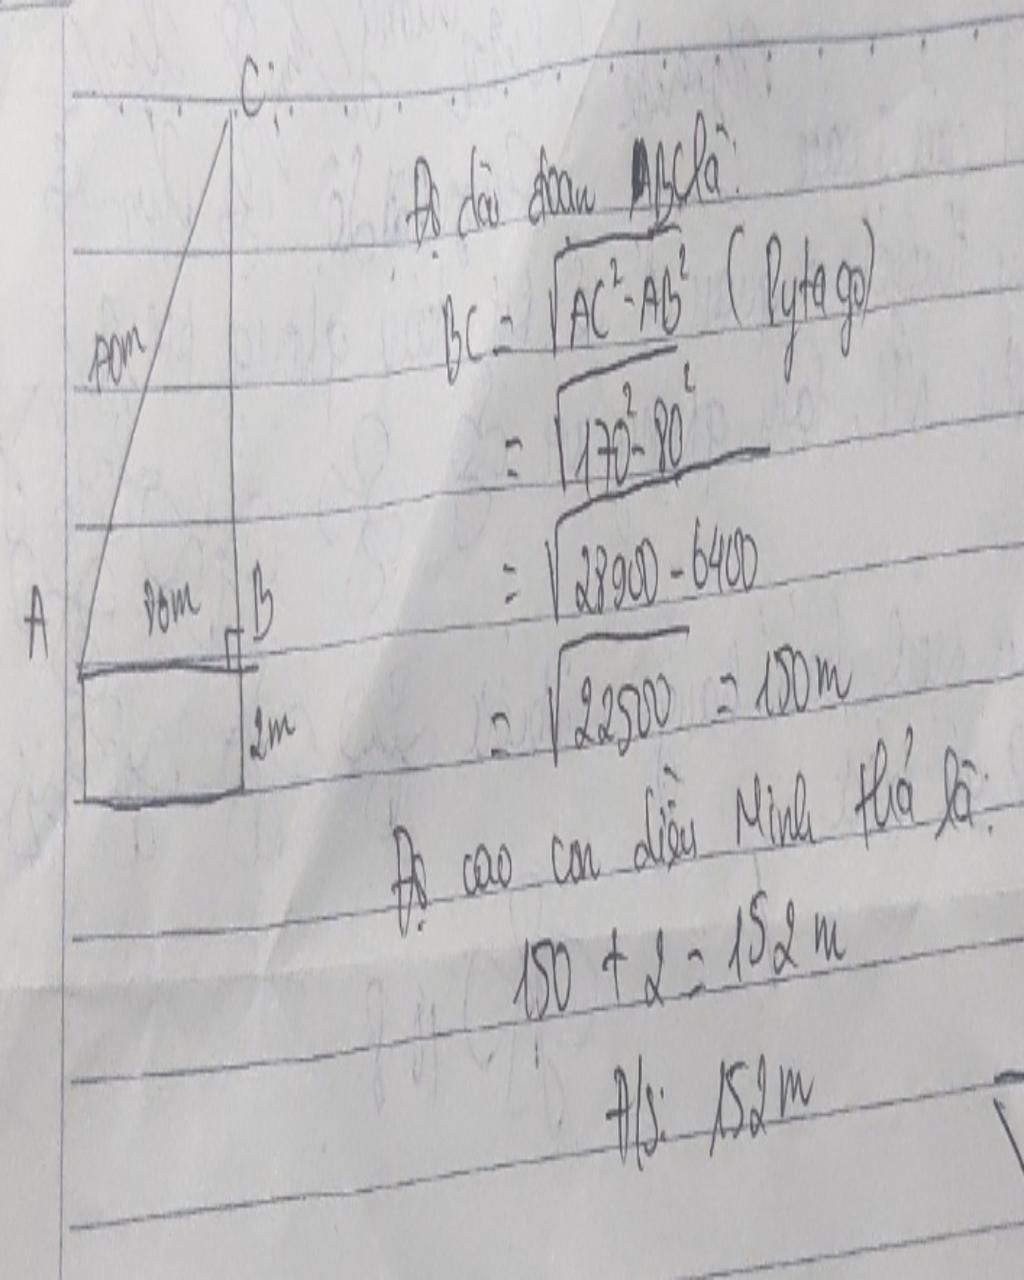 C
Độ dài đoạn BC là:
BC = √AC² - AB² (Pytago)
= √170² - 80²
= √28900 - 6400
= √22500 = 150m
A
80m
B
2m
Độ cao con diều Minh thả là:
150 + 2 = 152m
Đ/s: 152m